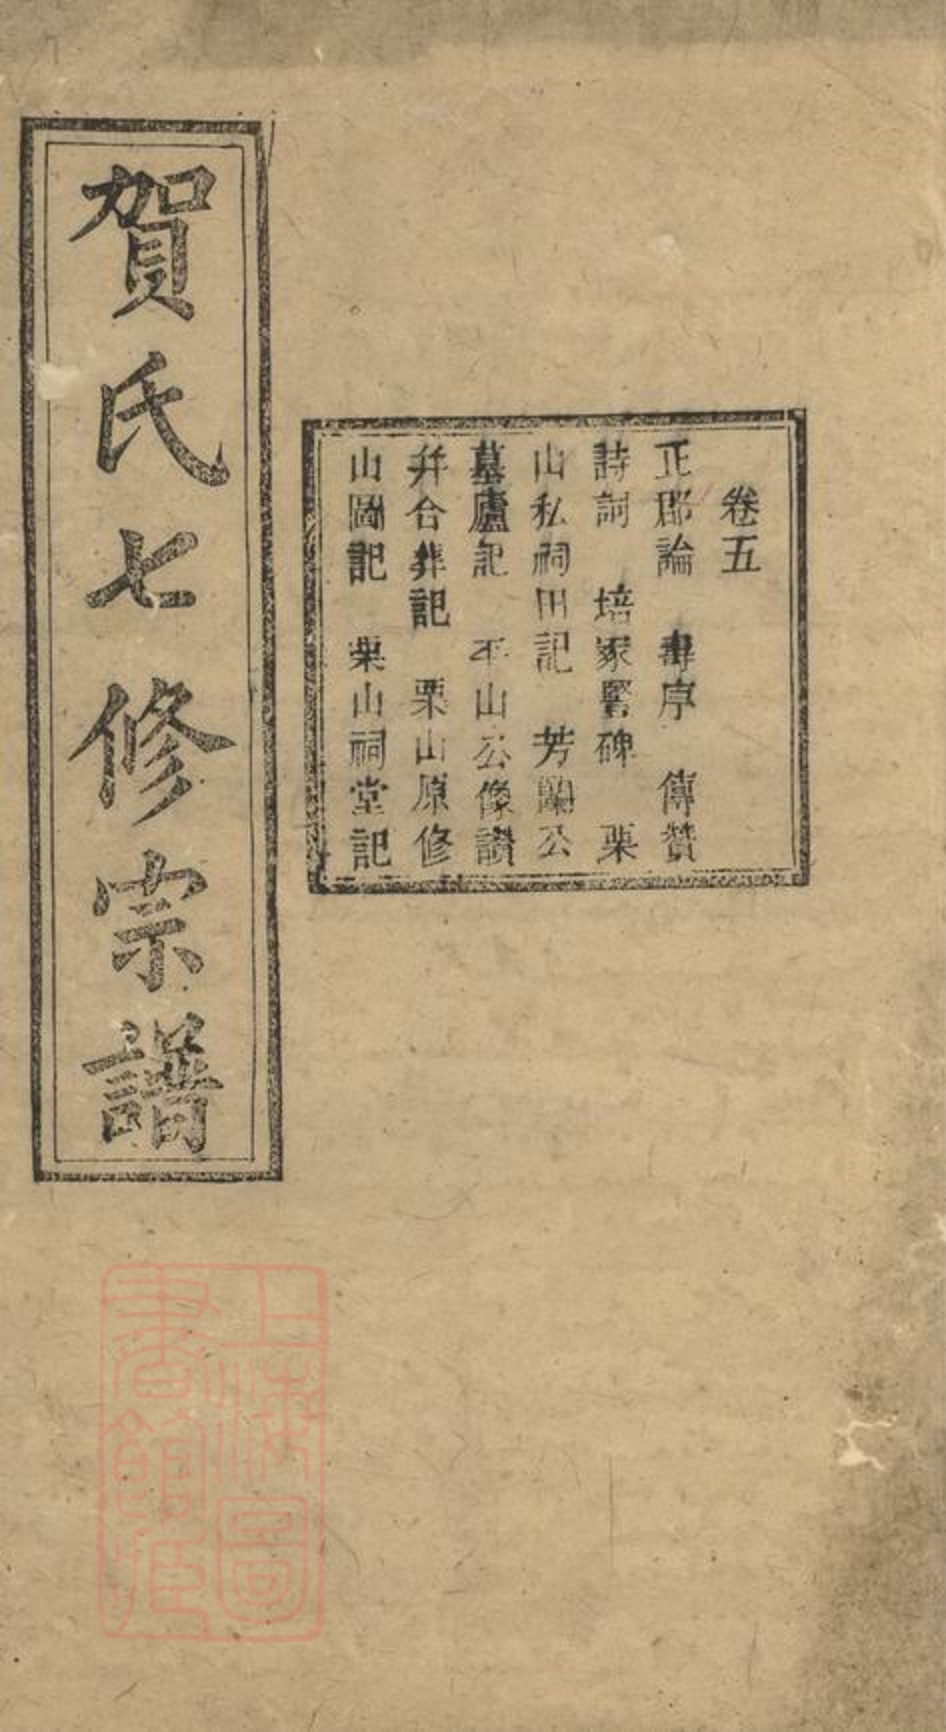 賀氏七修宗譜
卷五
正郡論　壽序　傳贊
詩詞　培冢誾碑　栗
山私祠田記　芳蘭公
墓廬記　平山公像讃
幷合葬記　栗山原修
山圖記　栗山祠堂記
上海圖
書館藏